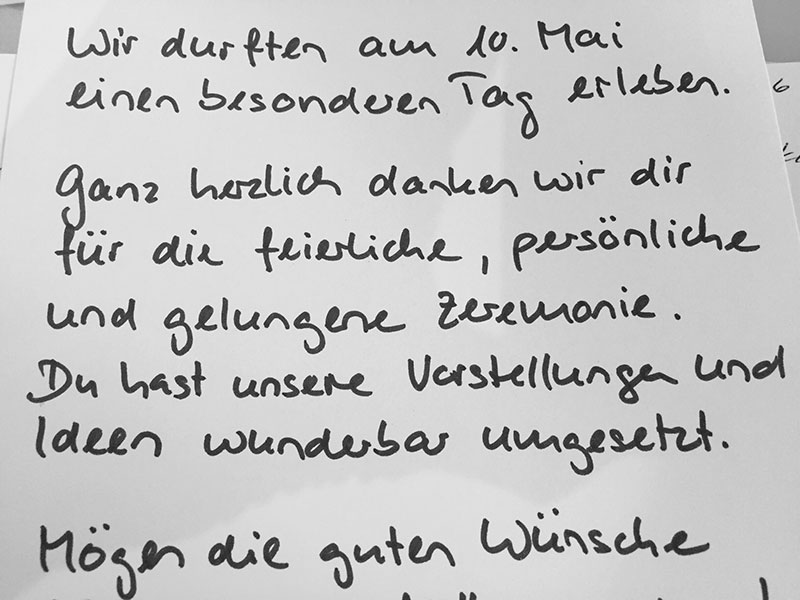 Wir durften am 10. Mai
einen besonderen Tag erleben.
Ganz herzlich danken wir dir
für die feierliche, persönliche
und gelungene Zeremonie.
Du hast unsere Vorstellungen und
Ideen wunderbar umgesetzt.
Mögen die guten Wünsche